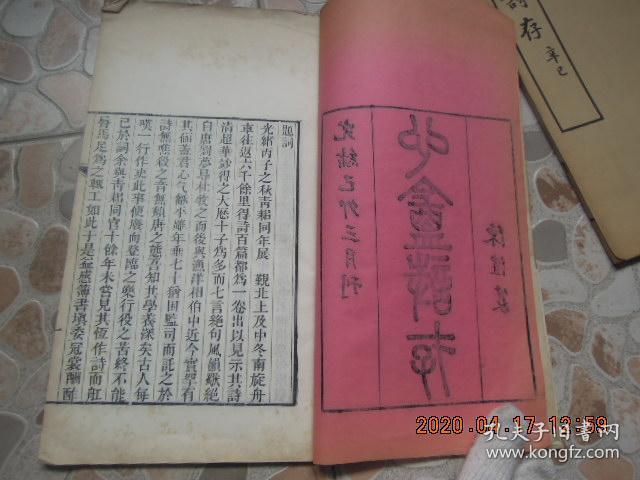 題詞
光緒丙子之秋青耜同年展 覲北上及中冬南旋舟
車往返六千餘里得詩百篇都為一卷出以見示其詩
清超華妙得之大厯十子為多而七言絕句風韻緜絕
自唐劉夢得杜牧之而後與漁洋相伯仲近今實學有
其儔蓋君心气龢平雖年垂七十猶困監司而託之於
詩無噍殺之音無頹唐之態吾知其學養深矣古人每
嘆一行作吏此事便廢而登臨之樂行役之苦終不能
已於詞余與青耜同官十餘年未嘗見其恆作詩而舡
脣馬足為之輒工如此于是益感簿書填委冠裳酬酢
光緒己卯三月刊
詩存
辛巳
2020.04.17 13:59
孔夫子旧书网